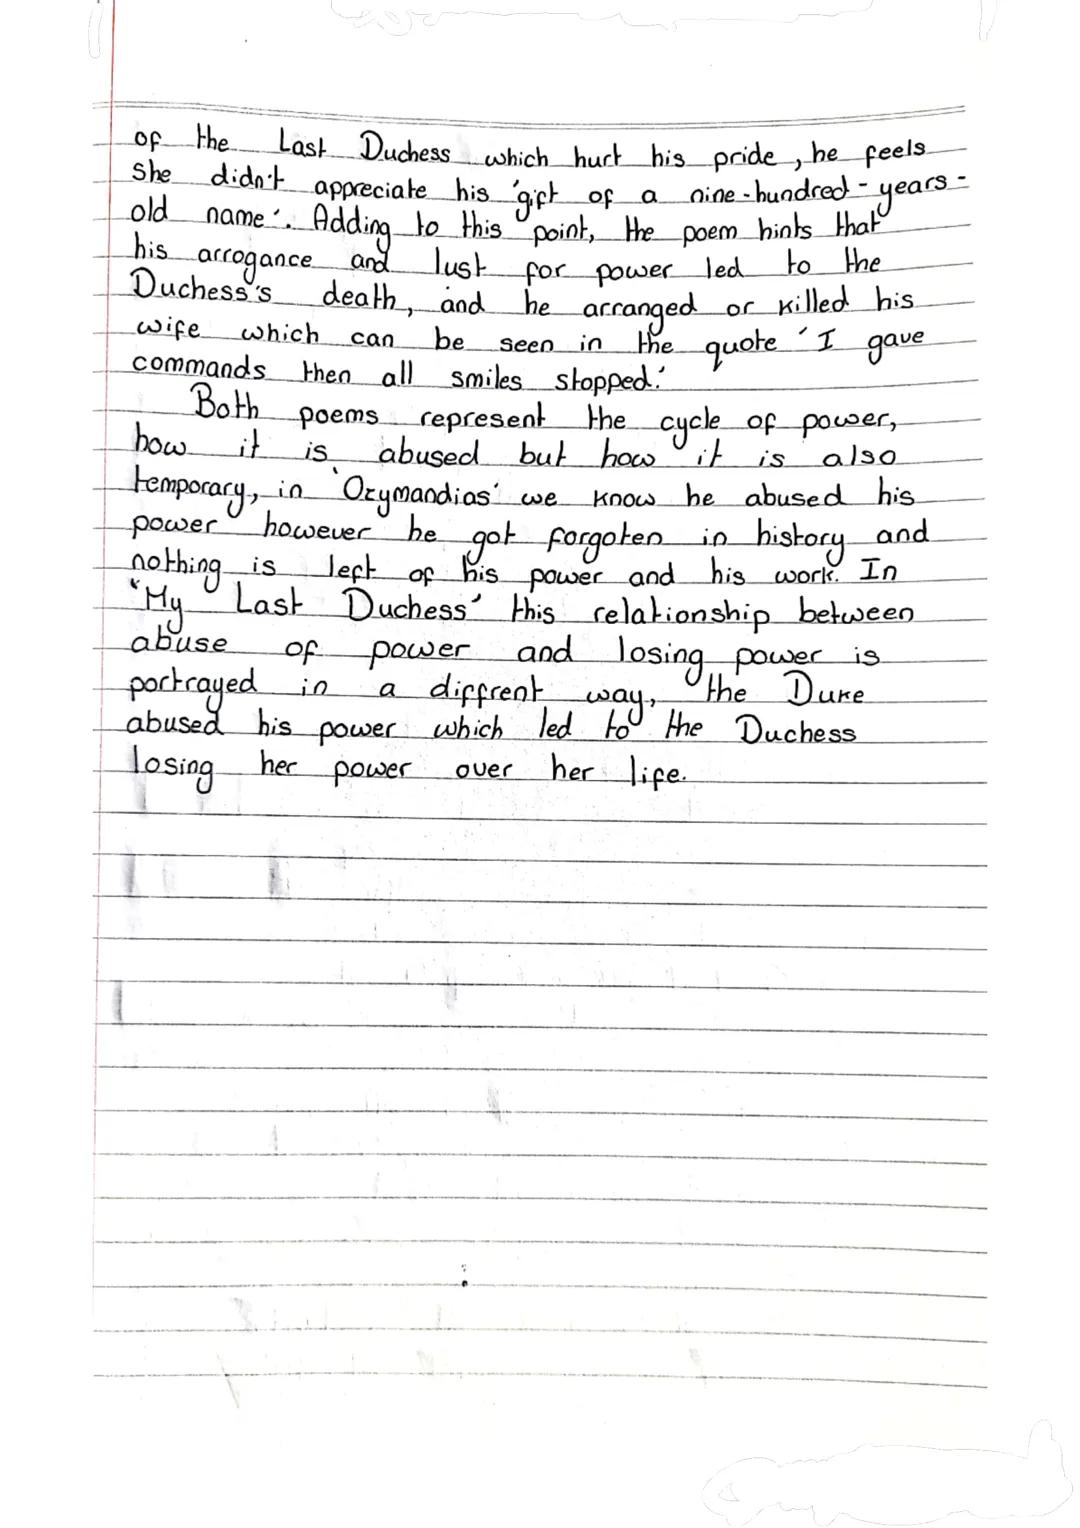 of the Last Duchess which hurt his pride, he feels
she didn't appreciate his 'gift of a nine-hundred-years-
old name'. Adding to this point, the poem hints that
his arrogance and lust for power led to the
Duchess's death, and he arranged or killed his
wife which can be seen in the quote 'I gave
commands then all smiles stopped.'
Both poems represent the cycle of power,
how it is abused but how it is also
temporary, in 'Ozymandias' we know he abused his
power however he got forgoten in history and
nothing is left of his power and his work. In
"My Last Duchess' this relationship between
abuse of power and losing power is
portrayed in a diffrent way, the Duke
abused his power which led to the Duchess
losing her power over her life.